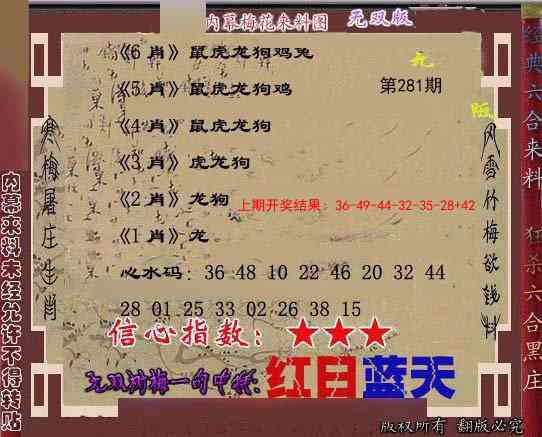 内幕梅花来料图 无双版
《6 肖》鼠虎龙狗鸡兔
《5 肖》鼠虎龙狗鸡
第281期
《4 肖》鼠虎龙狗
《3 肖》虎龙狗
《2 肖》龙狗
上期开奖结果：36-49-44-32-35-28+42
《1 肖》龙
心水码：36 48 10 22 46 20 32 44
28 01 25 33 02 26 38 15
信心指数：★★★
红日蓝天
寒梅屠庄生肖
风雪竹梅欲钱料
内幕来料未经允许不得转贴
经典六合来料 狂杀六合黑庄
版权所有 翻版必究